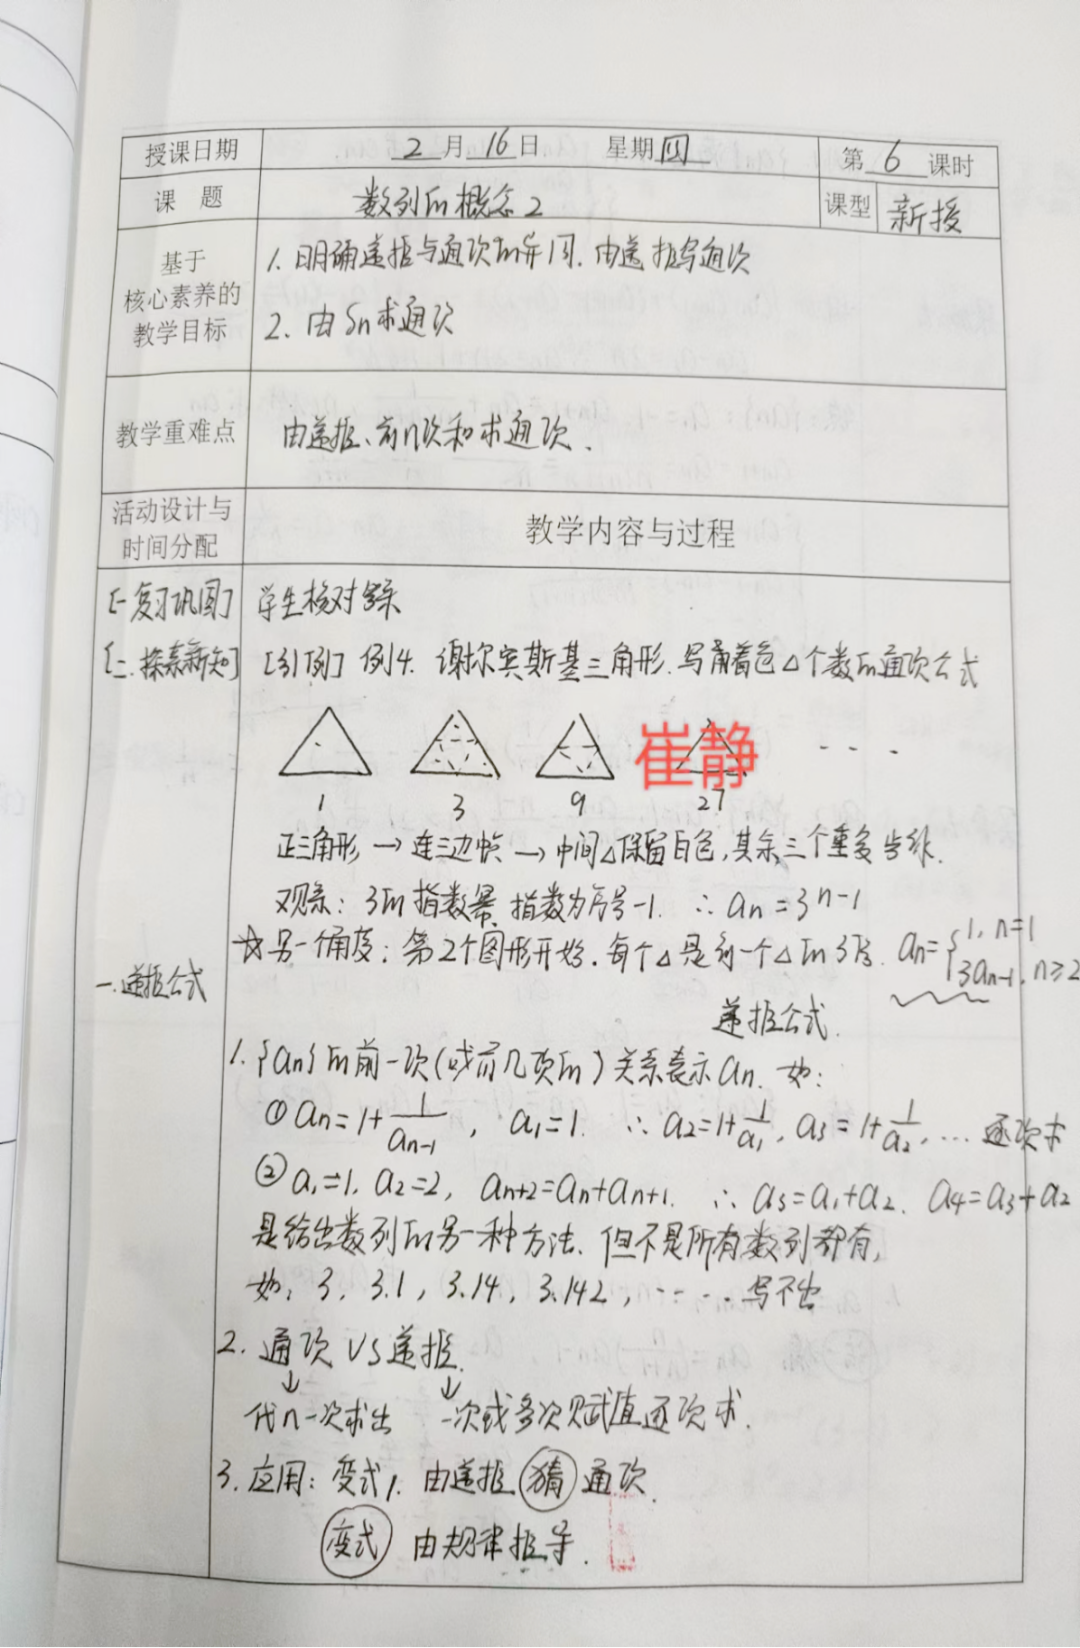 授课日期 2月16日 星期四 第6课时
课 题 数列的概念2 课型 新授
基于
核心素养的
教学目标
1. 明确递推与通项的异同. 由递推写通项
2. 由Sn求通项
教学重难点 由递推、前n项和求通项.
活动设计与
时间分配
教学内容与过程
[一.复习巩固] 学生核对答案
[二.探索新知] [引例] 例4. 谢尔宾斯基三角形. 写着色△个数的通项公式
崔静
1 3 9 27
正三角形 → 连三边 → 中间△保留白色,其余三个重复
观察: 3的指数幂, 指数为序号-1. ∴ an=3^{n-1}
☆另一个角度: 第2个图形开始. 每个△是前一个△的3倍. an={1, n=1
3an-1, n≥2
一.递推公式
递推公式.
1. {an}的前一项(或前几项的)关系表示an. 如:
① an=1+1/an-1, a1=1. ∴ a2=1+1/a1, a3=1+1/a2, … 逐项求
② a1=1, a2=2, an+2=an+an+1. ∴ a3=a1+a2. a4=a3+a2
是给出数列的另一种方法. 但不是所有数列都有,
如: 3, 3.1, 3.14, 3.142, ‥‥ 写不出
2. 通项 VS 递推.
↓ ↓
代n一次求出 一次或多次赋值逐项求.
3. 应用: 变式1. 由递推 猜 通项.
变式 由规律推导.